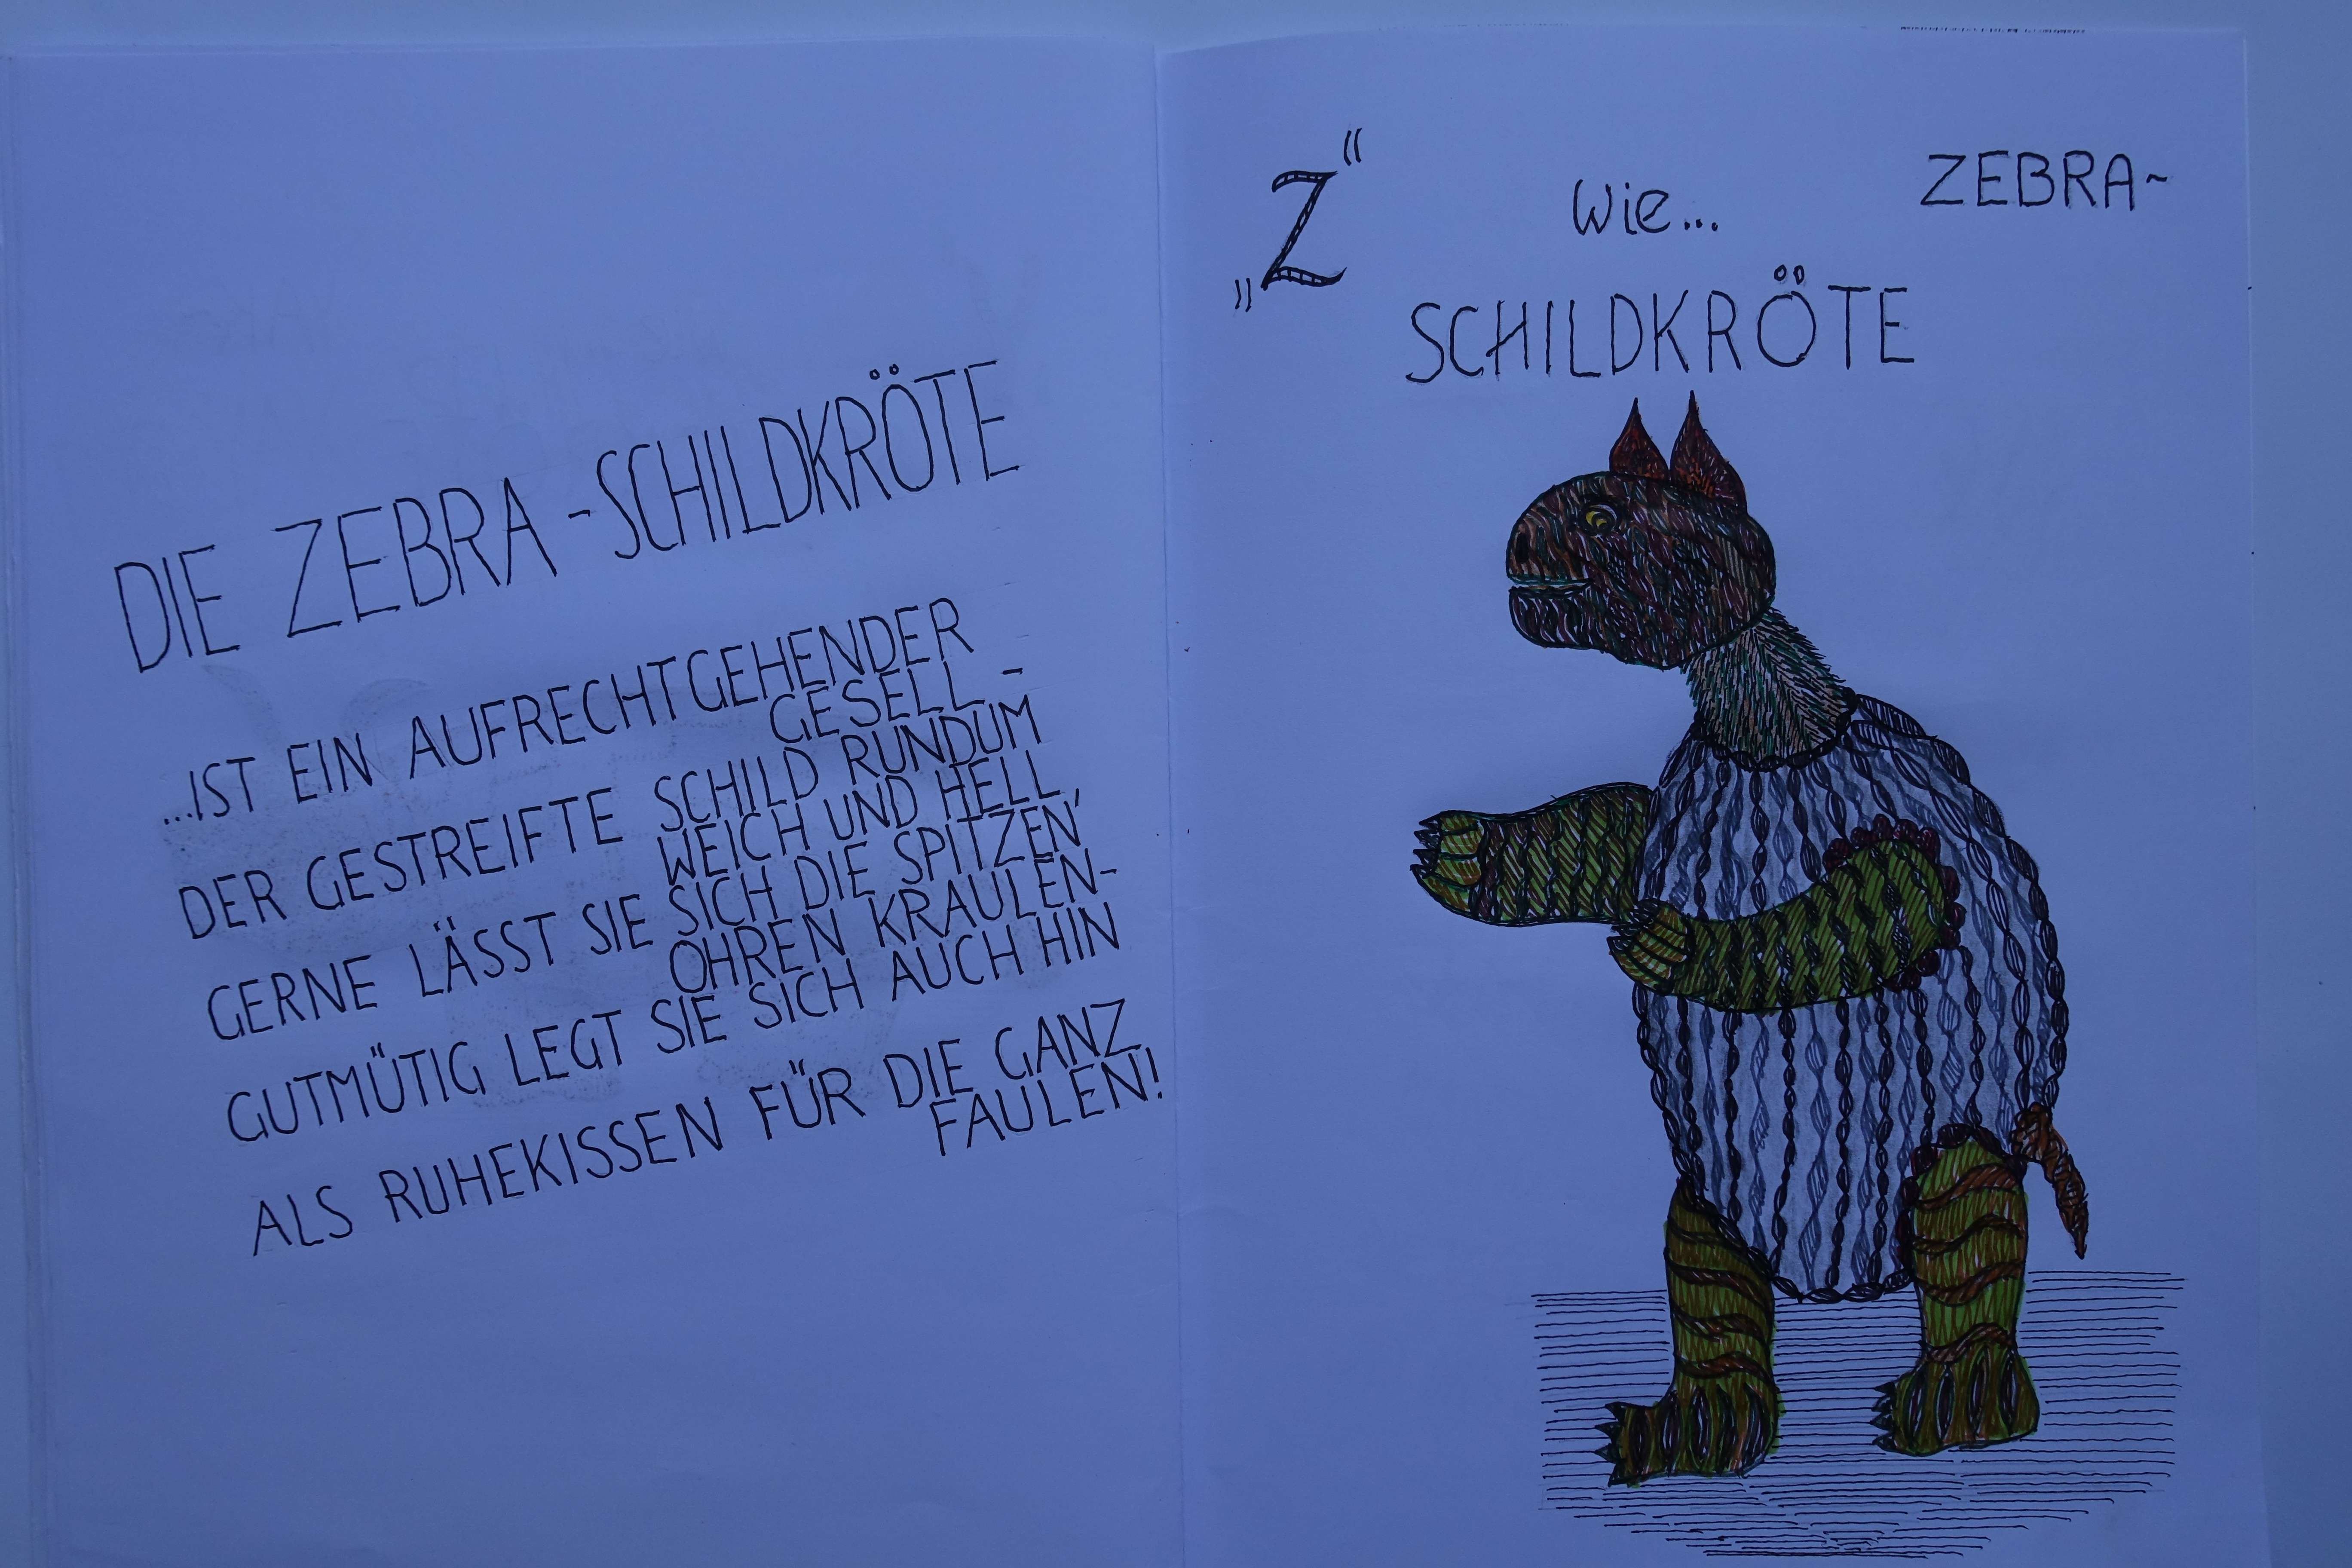 DIE ZEBRA-SCHILDKRÖTE
...IST EIN AUFRECHTGEHENDER
GESELL -
DER GESTREIFTE SCHILD RUNDUM
WEICH UND HELL,
GERNE LÄSST SIE SICH DIE SPITZEN
OHREN KRAULEN-
GUTMÜTIG LEGT SIE SICH AUCH HIN
ALS RUHEKISSEN FÜR DIE GANZ
FAULEN!
„Z“ Wie... ZEBRA~
SCHILDKRÖTE